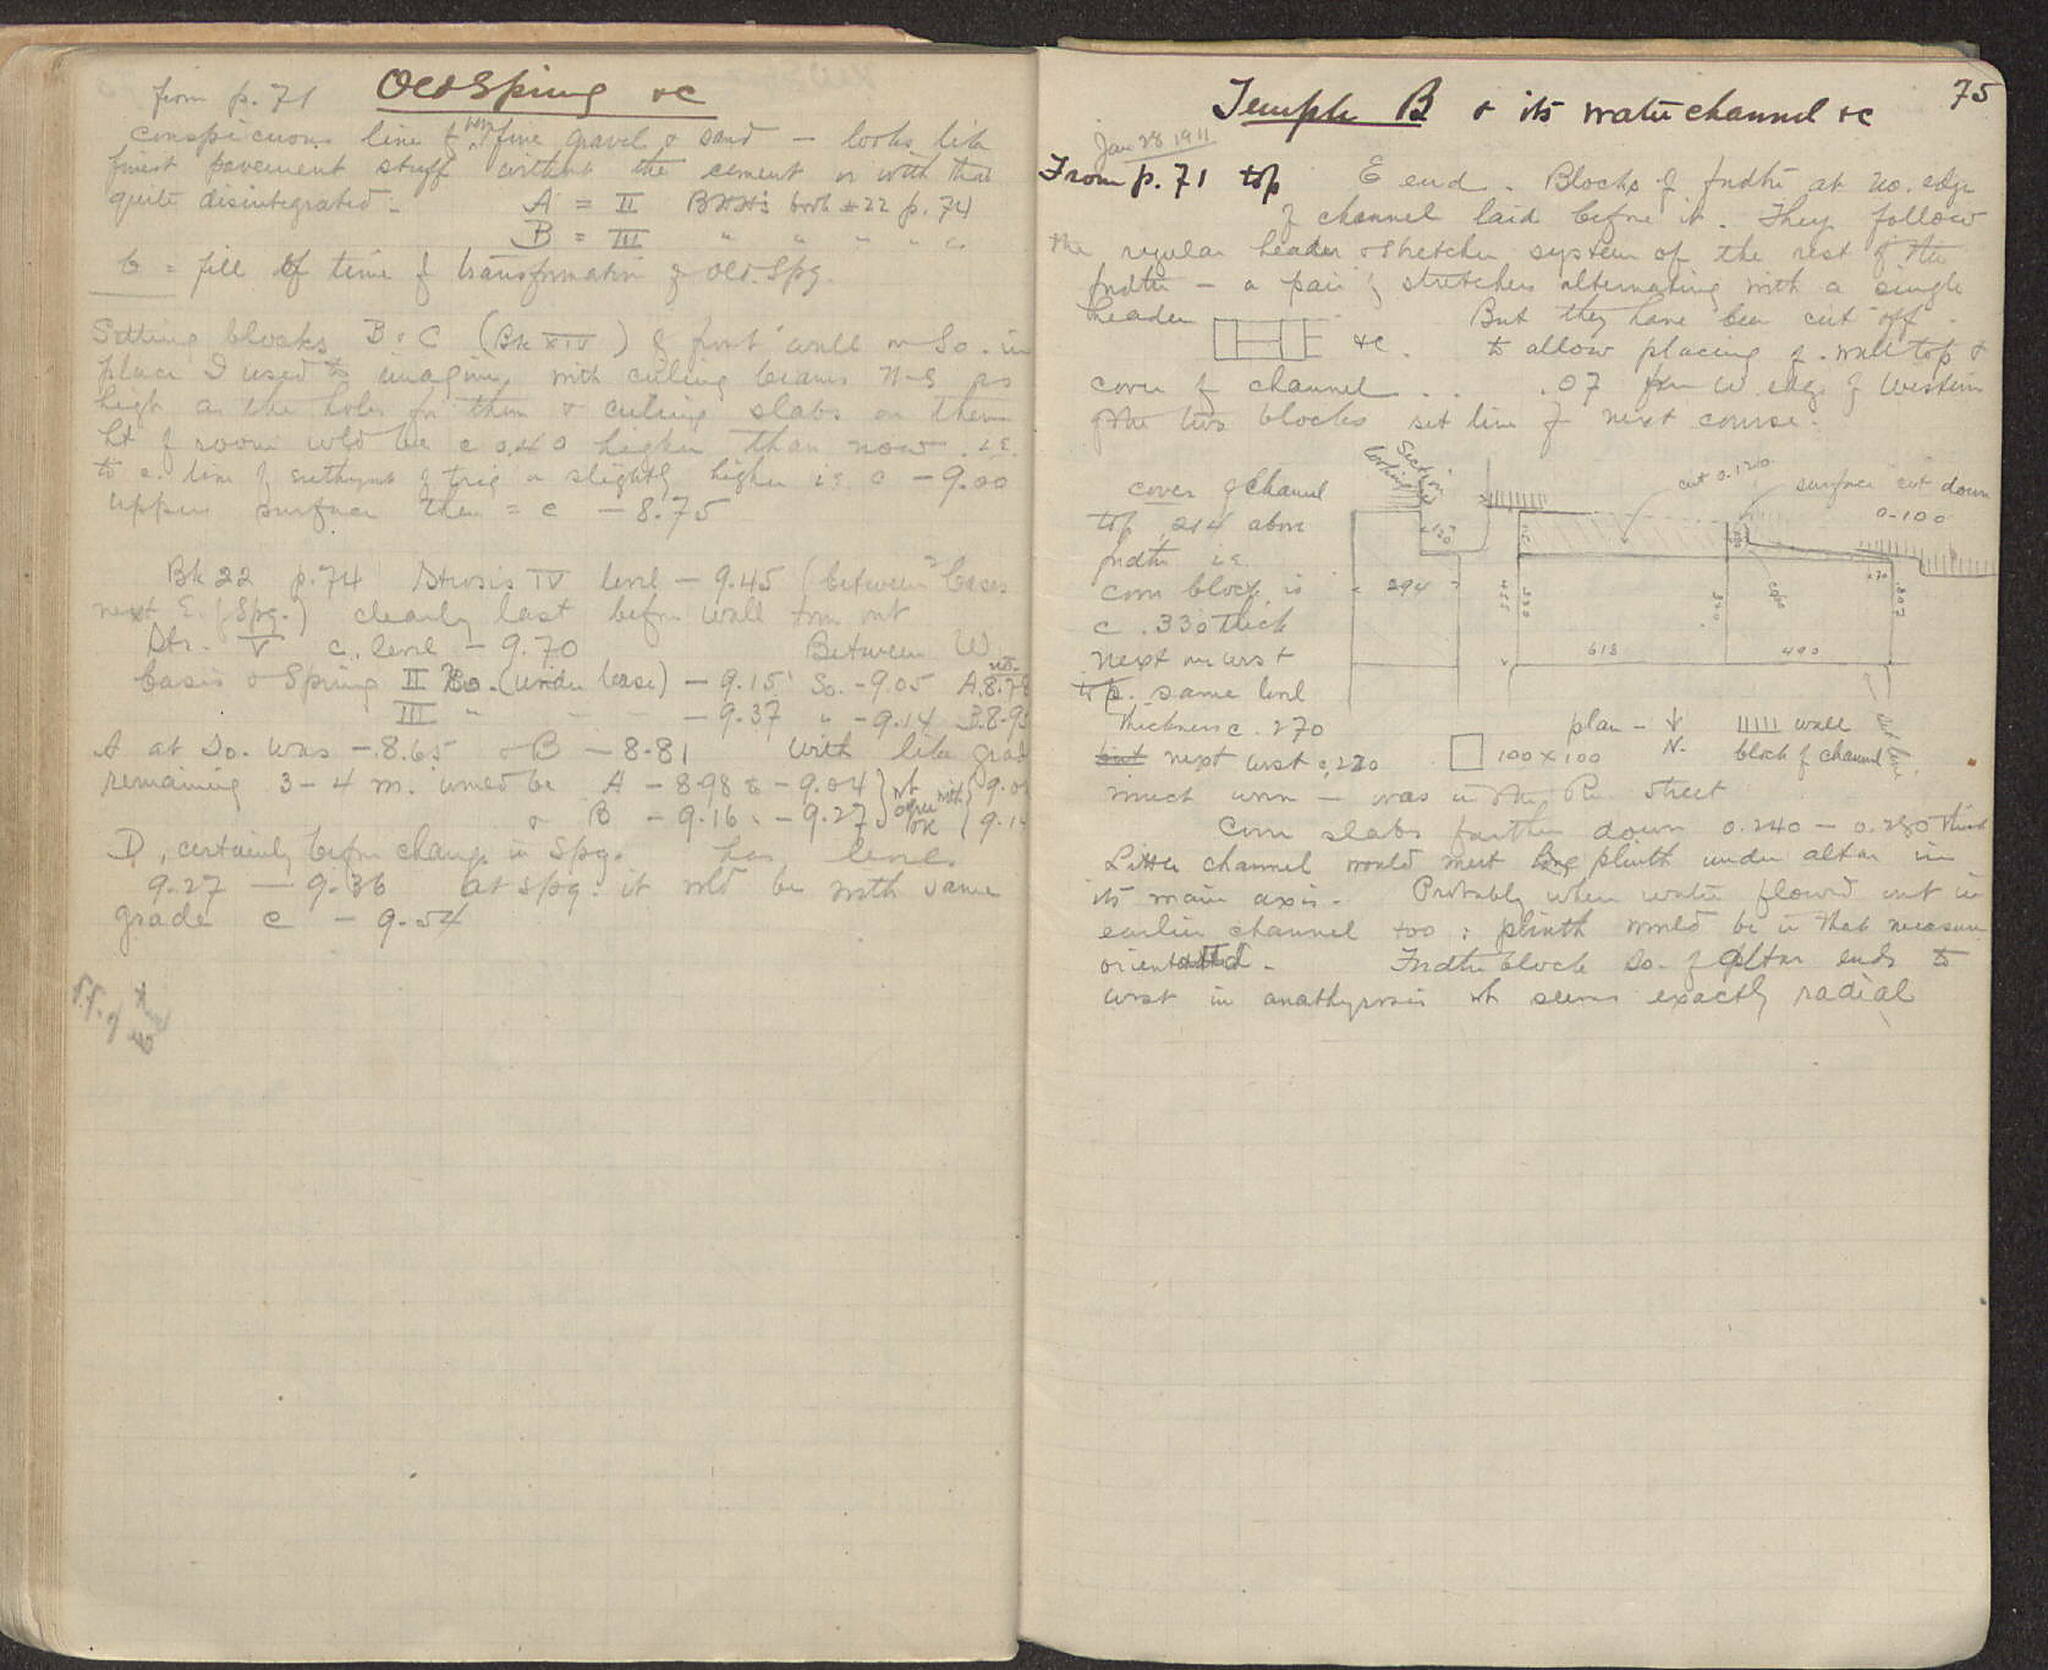 from p. 71 Old Spring &c
conspicuous line of very fine gravel & sand — looks like
finest pavement stuff without the cement or with that
quite disintegrated —
A = II BHH's book #22 p. 74
B = III " " " " "
C = fill of time of transformation of Old Spg.
Setting blocks B & C (Bk XIV) of front wall on So. in
place I used to imagine with ceiling beams N-S as
high as the holes for them & ceiling slabs on them
ht of room wld be c 0.40 higher than now . i.e.
to c. line of of trig or slightly higher i.e. c — 9.00
upper surface then = c — 8.75
Bk 22 p. 74 Strosis IV level — 9.45 (between 2 bases
next E. (Spg.) clearly last before wall torn out
Str. V c. level — 9.70 Between W.
basis & Spring II No. (under base) — 9.15 So. -9.05 A. 8.78
III " — — — 9.37 " -9.14 B. 8.9
A at So. was — 8.65 & B — 8.81 with like grade
remaining 3 – 4 m. would be A — 8.98 to — 9.04 } wh agree with { 9.0
& B — 9.16 : — 9.27 } ok { 9.1
D, certainly before change in Spg. has level
9.27 — 9.36 at spg. it wld be with same
grade c — 9.54
75
Temple B & its water channel &c
Jan 28 1911
From p. 71 top E end . Blocks of fndtn at no. edge
of channel laid before it . They follow
the regular header & stretcher system of the rest of the
fndtn — a pair of stretchers alternating with a single
header &c. But they have been cut off
to allow placing of wall top &
cover of channel . . .07 from W edge of western
of the two blocks set line of next course.
Section looking
cut 0.120
surface cut down
0.100
cover of channel
top .214 above
fndtn i.e.
cover block is
c .330 thick
next on west
top. same level
thickness c. 270
but next west c. 220
294
618
490
plan — N. wall
100 x 100 block of channel
much worn — was in the Ro. street
Cover slabs farther down 0.240 – 0.280 thick
Little channel would meet long plinth under altar in
its main axis. Probably when water flowed out in
earlier channel too : plinth would be in that measure
oriented. Fndtn block So. of altar ends to
west in anathyrosis wh seems exactly radial